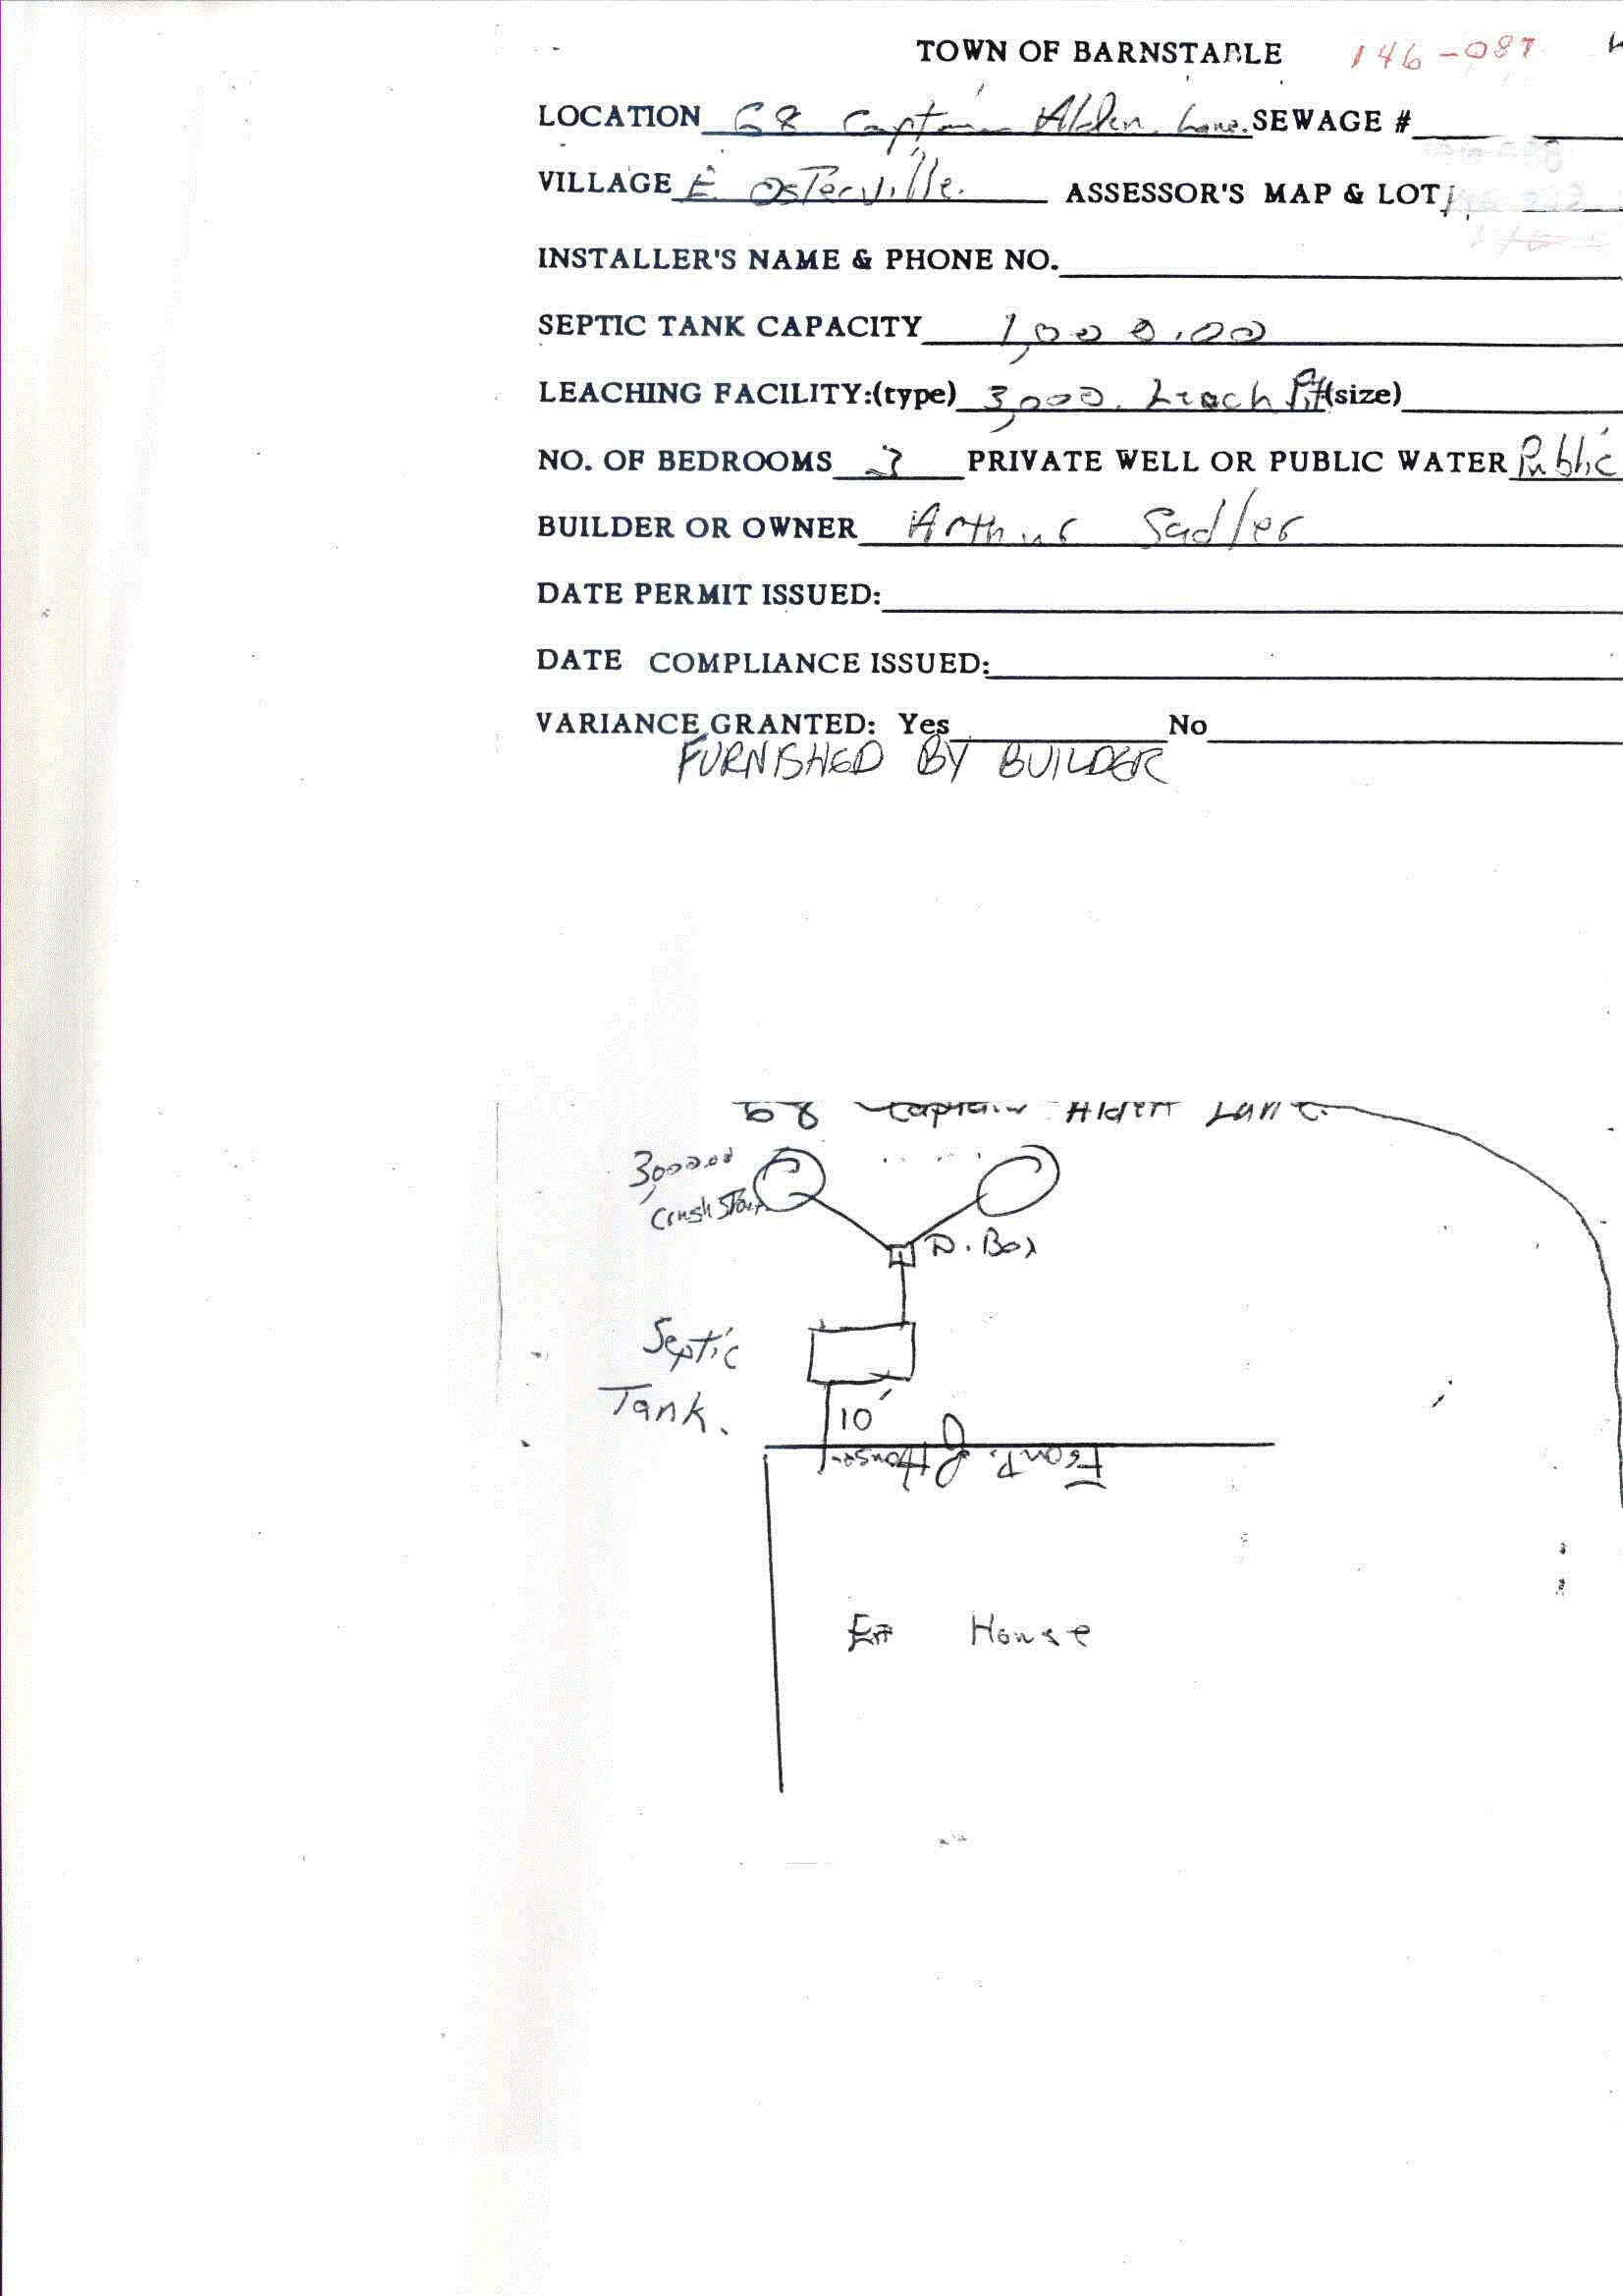 TOWN OF BARNSTABLE 146-087
LOCATION 68 Captain Alden Lane. SEWAGE #
VILLAGE E. Osterville. ASSESSOR'S MAP & LOT
INSTALLER'S NAME & PHONE NO.
SEPTIC TANK CAPACITY 1,000.00
LEACHING FACILITY:(type) 3,000. Leach Pit (size)
NO. OF BEDROOMS 3 PRIVATE WELL OR PUBLIC WATER Public
BUILDER OR OWNER Arthur Sadler
DATE PERMIT ISSUED:
DATE COMPLIANCE ISSUED:
VARIANCE GRANTED: Yes No
FURNISHED BY BUILDER
68 Captain Alden Lane.
3,000.00
Crush
D. Box
Septic
Tank.
10'
House
House